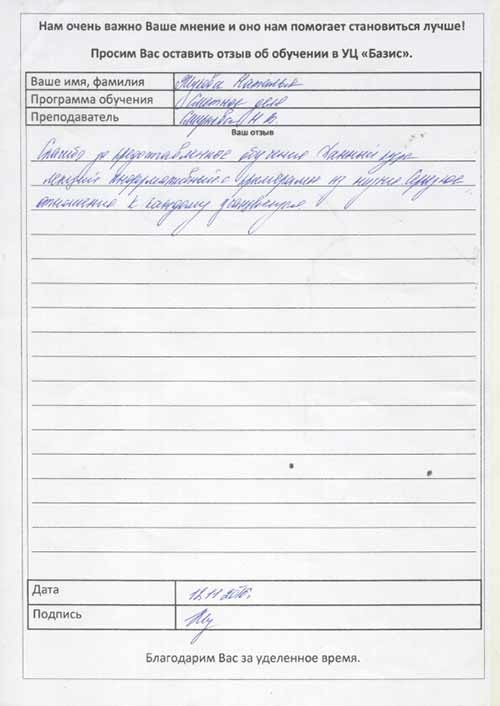 Нам очень важно Ваше мнение и оно нам помогает становиться лучше!
Просим Вас оставить отзыв об обучении в УЦ «Базис».
Ваше имя, фамилия Наталья
Программа обучения Сметное дело
Преподаватель Н.В.
Ваш отзыв
Спасибо за предоставленное обучение. Данный курс
лекций информативный с примерами из жизни. Серьезное
отношение к каждому
Дата
Подпись
Благодарим Вас за уделенное время.